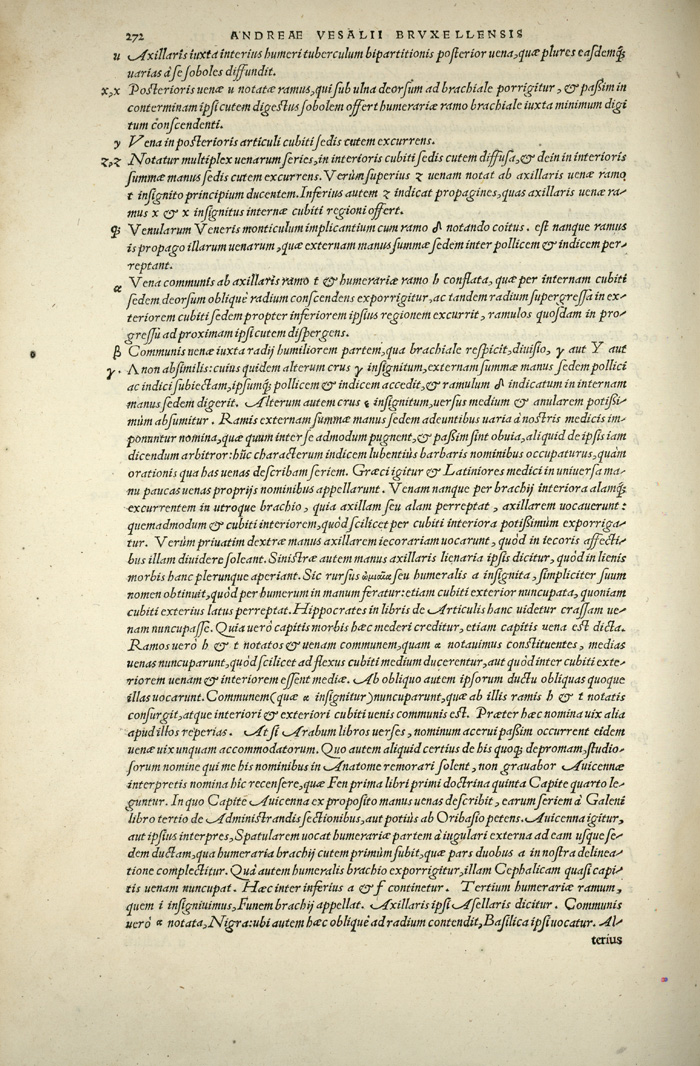 272 ANDREAE VESALII BRVXELLENSIS
u Axillaris iuxta interius humeri tuberculum bipartitionis posterior uena, quæ plures easdemq́;
uarias à se soboles diffundit.
x,x Posterioris uenæ u notatæ ramus, qui sub ulna deorsum ad brachiale porrigitur, & paßim in
conterminam ipsi cutem digestus sobolem offert humerariæ ramo brachiale iuxta minimum digi
tum conscendenti.
y Vena in posterioris articuli cubiti sedis cutem excurrens.
z,z Notatur multiplex uenarum series, in interioris cubiti sedis cutem diffusa, & dein in interioris
summæ manus sedis cutem excurrens. Verùm superius z uenam notat ab axillaris uenæ ramo
t insignito principium ducentem. Inferius autem z indicat propagines, quas axillaris uenæ ra-
mus x & x insignitus internæ cubiti regioni offert.
q́; Venularum Veneris monticulum implicantium cum ramo δ notando coitus. est nanque ramus
is propago illarum uenarum, quæ externam manus summæ sedem inter pollicem & indicem per-
reptant.
α Vena communis ab axillaris ramo t & humerariæ ramo h conflata, quæ per internam cubiti
sedem deorsum obliquè radium conscendens exporrigitur, ac tandem radium supergressa in ex-
teriorem cubiti sedem propter inferiorem ipsius regionem excurrit, ramulos quosdam in pro-
gressu ad proximam ipsi cutem dispergens.
β Communis uenæ iuxta radij humiliorem partem, qua brachiale respicit, diuisio, γ aut Y aut
γ. Λ non absimilis: cuius quidem alterum crus γ insignitum, externam summæ manus sedem pollici
ac indici subiectam, ipsumq́; pollicem & indicem accedit, & ramulum δ indicatum in internam
manus sedem digerit. Alterum autem crus ε insignitum, uersus medium & anularem potißi-
mùm absumitur. Ramis externam summæ manus sedem adeuntibus uaria à nostris medicis im-
ponuntur nomina, quæ quum inter se admodum pugnent, & paßim sint obuia, aliquid de ipsis iam
dicendum arbitror: hîc characterum indicem lubentiùs barbaris nominibus occupaturus, quàm
orationis qua has uenas describam seriem. Græci igitur & Latiniores medici in uniuersa ma-
nu paucas uenas proprijs nominibus appellarunt. Venam nanque per brachij interiora alamq́;
excurrentem in utroque brachio, quia axillam seu alam perreptat, axillarem uocauerunt:
quemadmodum & cubiti interiorem, quòd scilicet per cubiti interiora potißimùm exporriga-
tur. Verùm priuatim dextræ manus axillarem iecorariam uocarunt, quòd in iecoris affecti-
bus illam diuidere soleant. Sinistræ autem manus axillaris lienaria ipsis dicitur, quòd in lienis
morbis hanc plerunque aperiant. Sic rursus ὠμιαία seu humeralis a insignita, simpliciter suum
nomen obtinuit, quòd per humerum in manum feratur: etiam cubiti exterior nuncupata, quoniam
cubiti exterius latus perreptat. Hippocrates in libris de Articulis hanc uidetur crassam ue-
nam nuncupasse. Quia uerò capitis morbis hæc mederi creditur, etiam capitis uena est dicta.
Ramos uerò h & t notatos & uenam communem, quam α notauimus constituentes, medias
uenas nuncuparunt, quòd scilicet ad flexus cubiti medium ducerentur, aut quòd inter cubiti exte-
riorem uenam & interiorem essent mediæ. Ab obliquo autem ipsorum ductu obliquas quoque
illas uocarunt. Communem (quæ α insignitur) nuncuparunt, quæ ab illis ramis h & t notatis
consurgit, atque interiori & exteriori cubiti uenis communis est. Præter hæc nomina uix alia
apud illos reperias. At si Arabum libros uerses, nominum acerui paßim occurrent eidem
uenæ uix unquam accommodatorum. Quo autem aliquid certius de his quoq; depromam, studio-
sorum nomine qui me his nominibus in Anatome remorari solent, non grauabor Auicennæ
interpretis nomina hîc recensere, quæ Fen prima libri primi doctrina quinta Capite quarto le-
guntur. In quo Capite Auicenna ex proposito manus uenas describit, earum seriem à Galeni
libro tertio de Administrandis sectionibus, aut potiùs ab Oribasio petens. Auicenna igitur,
aut ipsius interpres, Spatularem uocat humerariæ partem à iugulari externa ad eam usque se-
dem ductam, qua humeraria brachij cutem primùm subit, quæ pars duobus a in nostra delinea-
tione complectitur. Quà autem humeralis brachio exporrigitur, illam Cephalicam quasi capi-
tis uenam nuncupat. Hæc inter inferius a & f continetur. Tertium humerariæ ramum,
quem i insigniuimus, Funem brachij appellat. Axillaris ipsi Asellaris dicitur. Communis
uerò α notata, Nigra: ubi autem hæc obliquè ad radium contendit, Basilica ipsi uocatur. Al-
terius